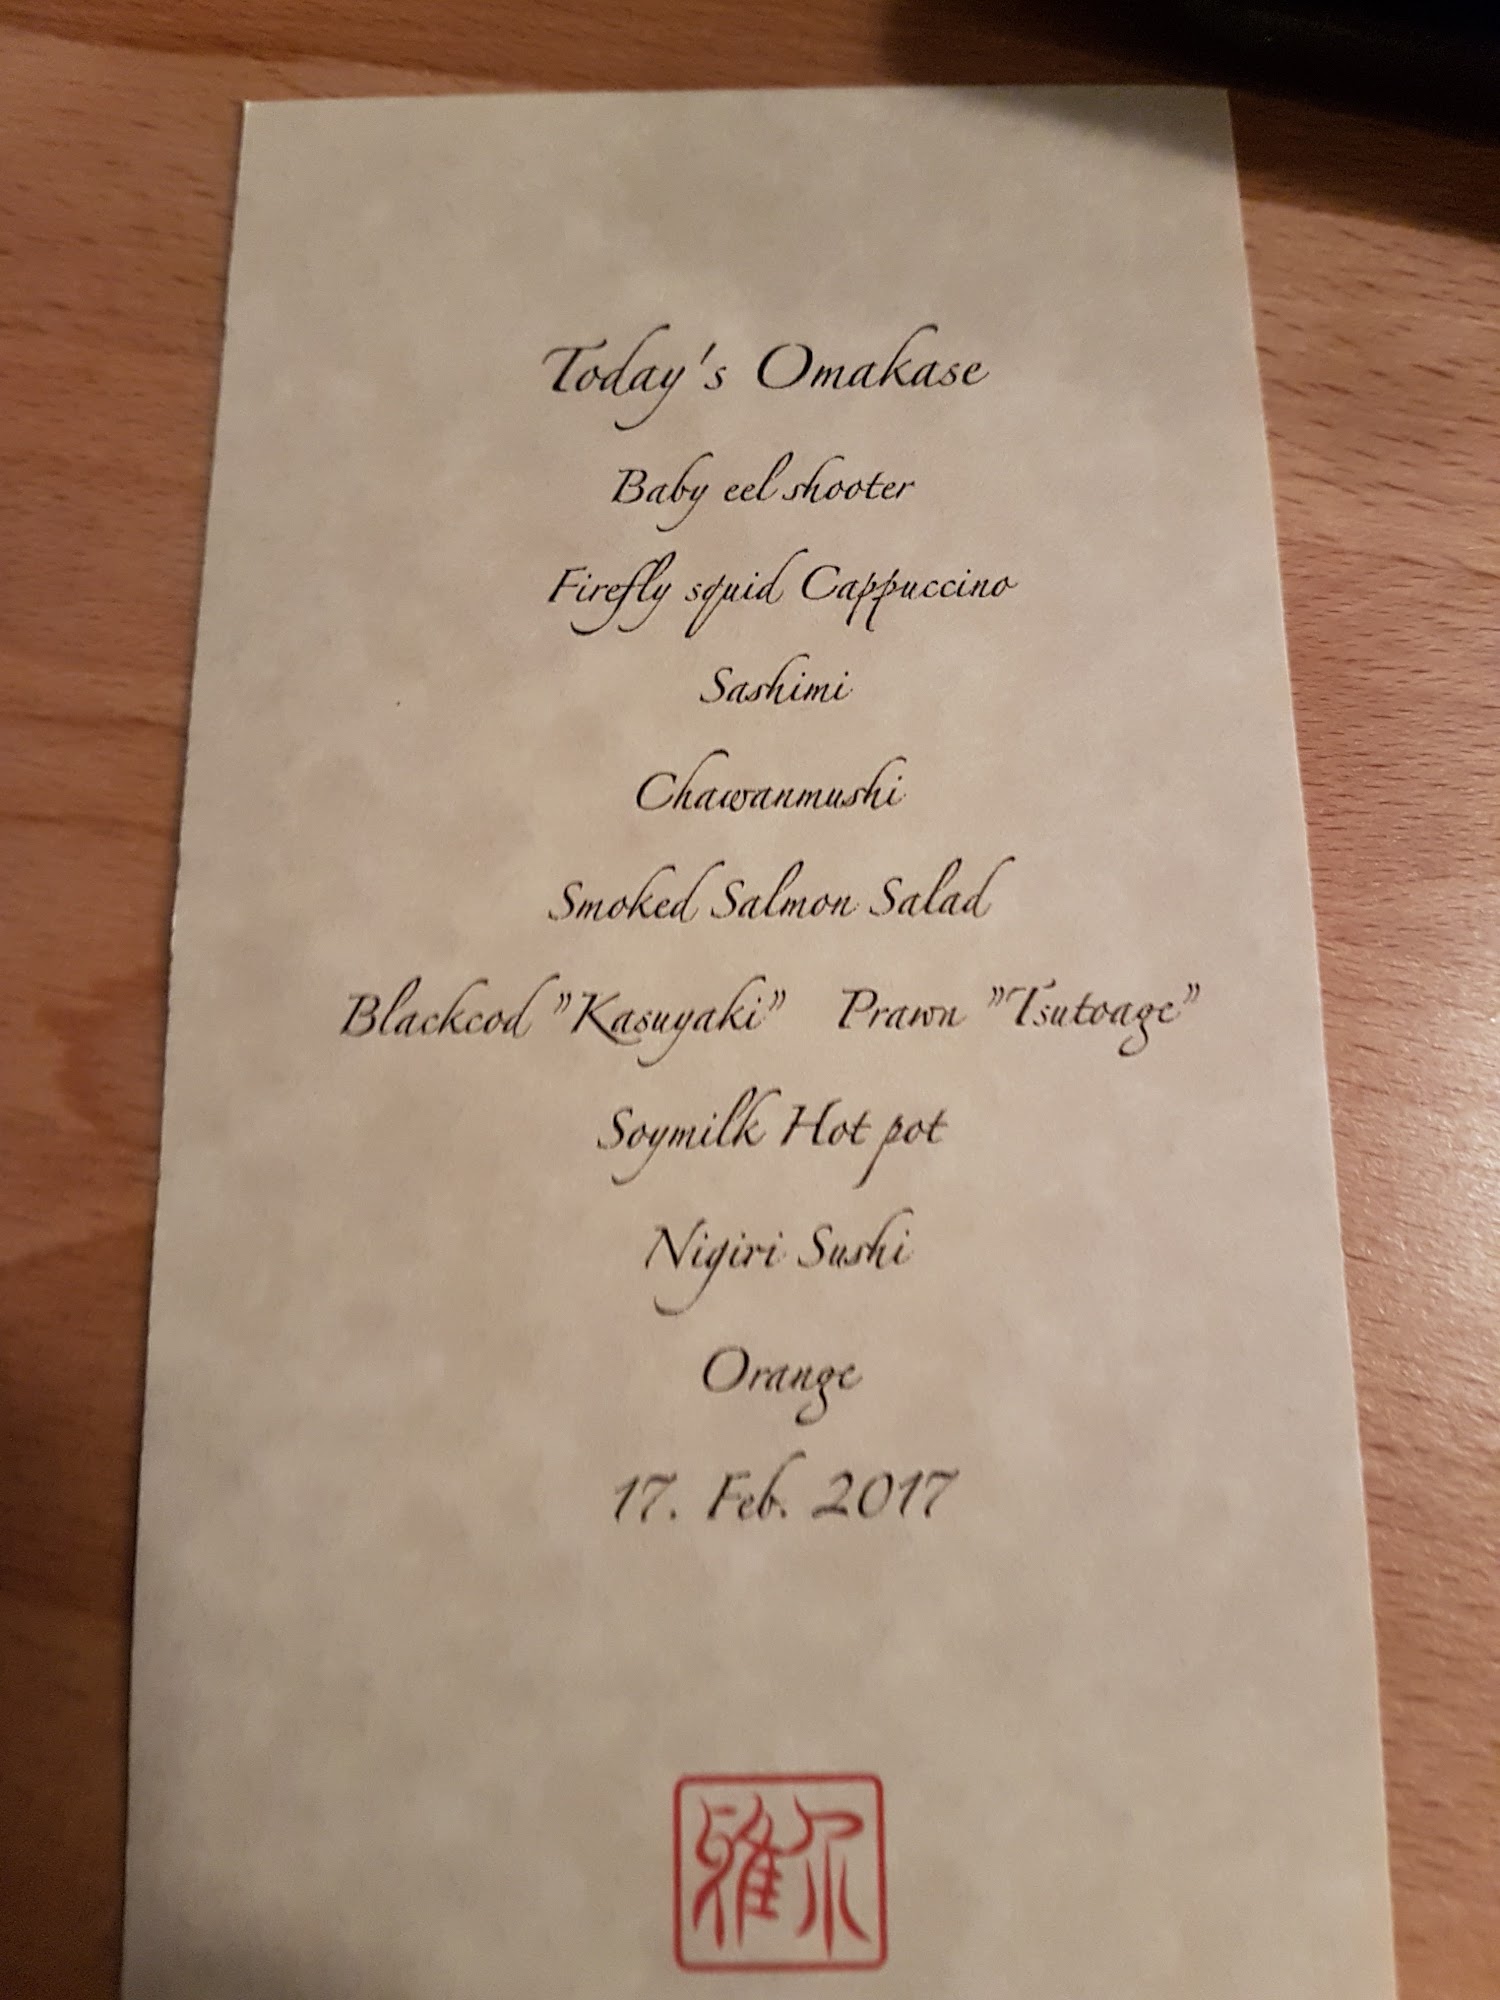 Today's Omakase
Baby eel shooter
Firefly squid Cappuccino
Sashimi
Chawanmushi
Smoked Salmon Salad
Blackcod "Kasuyaki" Prawn "Tsutoage"
Soymilk Hot pot
Nigiri Sushi
Orange
17. Feb. 2017
雅尔